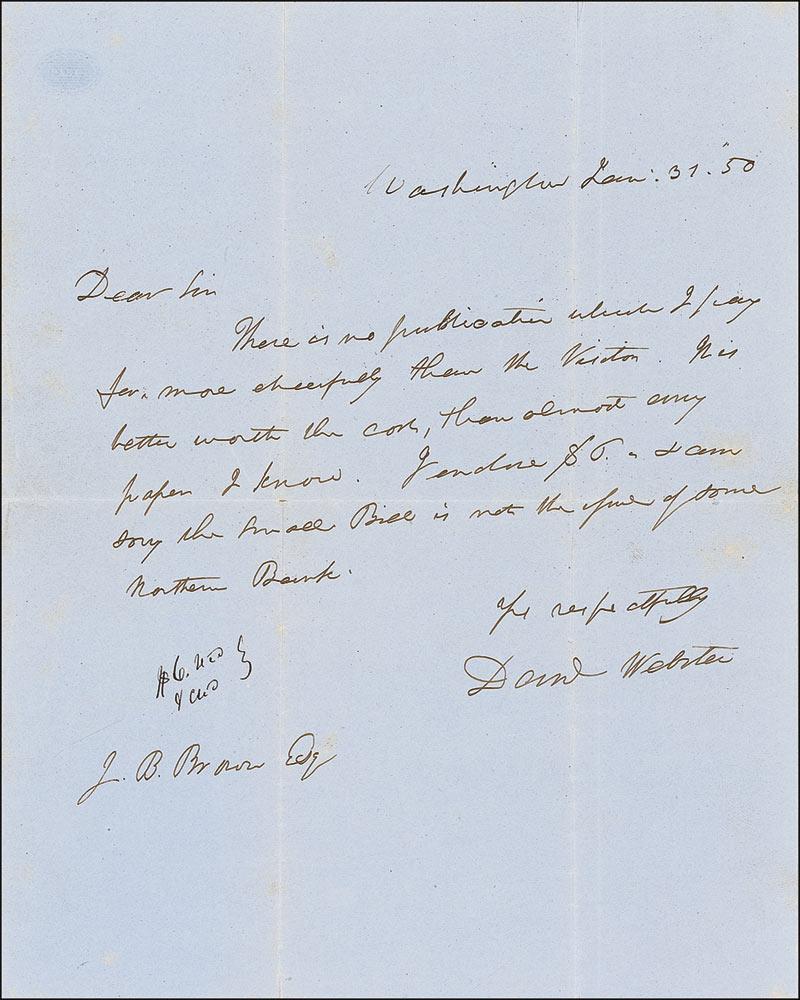 Washington Jan: 31. '50
Dear Sir
There is no publication which I pay
for, more cheerfully than the Visitor. It is
better worth the cost, than almost any
paper I know. I enclose $6. & am
sorry the small Bill is not the issue of some
Northern Bank.
Yrs respectfully
Danl Webster
$6.
J. B. Brown Esq